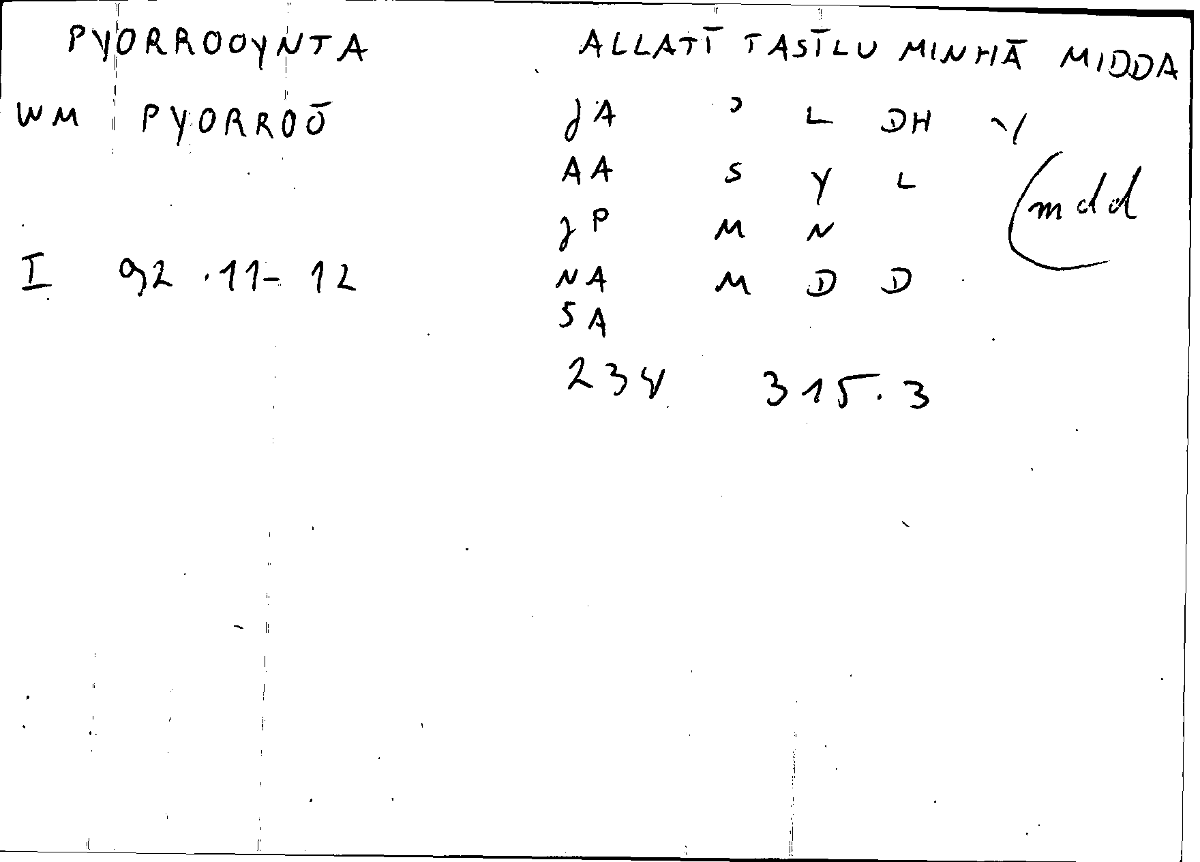 PYORROOYNTA ALLATĪ TASĪLU MINHĀ MIDDA
WM PYORROŌ JA ʾ L DH Y
AA S Y L
(mdd
JP M N
I 92.11-12 NA M D D
SA
234 315.3